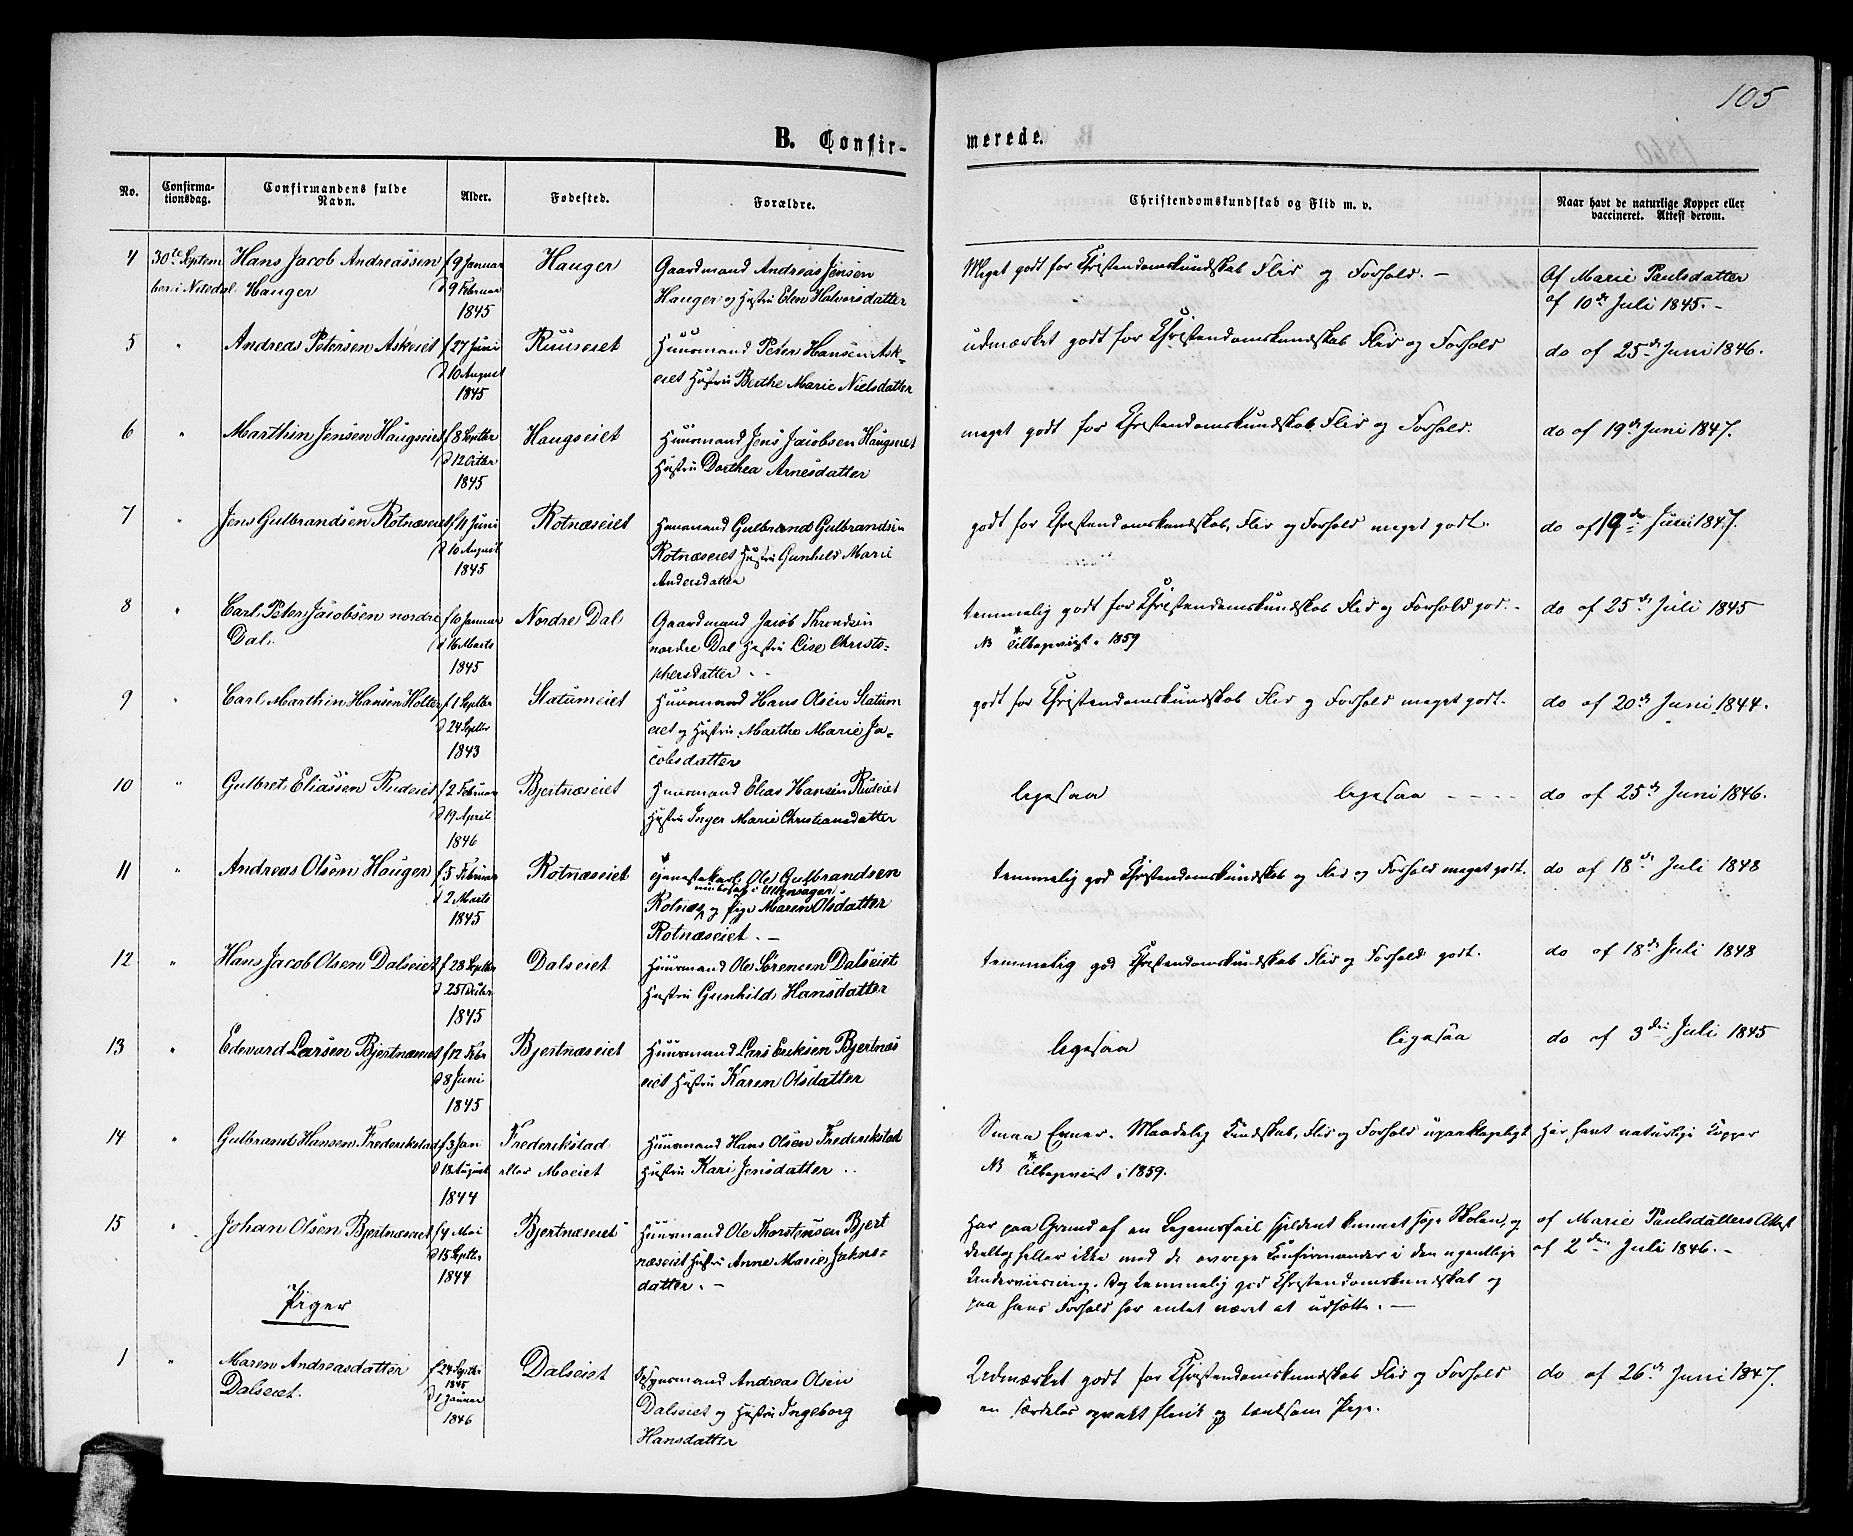 105
B. Confir-
merede.
No.
Confirma-
tionsdag.
Confirmandens fulde
Navn.
Alder.
Fødested.
Forældre.
Christendomskundskab og Flid m. v.
Naar havt de naturlige Kopper eller
vaccineret. Attest derom.
4 30te Septem Hans Jacob Andreassen f 9 Januar Hauger Gaardmand Andreas Jensen Meget godt for Christendomskundskab Flid og Forhold. — Af Marie Paulsdatter
ber i Nitedal Hauger d 9 Februar Hauger og Hustru Elen Halvorsdatter af 10de Juli 1845. -
1845
5 " Andreas Petersen Askeiet f 27 Juni Ruuseiet Huusmand Peter Hansen Ask- udmærket godt for Christendomskundskab Flid og Forhold do af 25de Juni 1846.
d 10 August eiet Hustru Berthe Marie Nielsdatter
1845
6 " Marthin Jensen Haugseiet f 8 Septbr Haugseiet Huusmand Jens Jacobsen Haugseiet meget godt for Christendomskundskab, Flid og Forhold. do af 19de Juni 1847.
d 12 Octbr Hustru Dorthea Arnesdatter
1845
7 " Jens Gulbrandsen Rotnæseiet f 11 Juni Rotnæseiet Huusmand Gulbrand Gulbrandsen godt for Christendomskundskab, Flid og Forhold meget godt. do af 19de Juni 1847.
d 10 August Rotnæseiet Hustru Gunhild Marie
1845 Andersdatter
8 " Carl Peter Jacobsen nordre f 10 Januar Nordre Dal Gaardmand Jacob Throndsen temmelig godt for Christendomskundskab Flid og Forhold god. - do af 25de Juli 1845
Dal. d 16 Marts nordre Dal Hustru Lise Christo- NB Tilbageviist i 1859
1845 phersdatter
9 " Carl Marthin Hansen Holter f 1 Septbr Slatumeiet Huusmand Hans Olsen Slatum godt for Christendomskundskab Flid og Forhold meget godt. do af 20de Juni 1844.
d 24 Septbr eiet og Hustru Marthe Marie Ja-
1843 cobsdatter
10 " Gulbret Eliassen Rudeiet f 2 Februar Bjertnæseiet Huusmand Elias Hansen Rudeiet ligesaa ligesaa - - - - do af 25de Juni 1846.
d 19 April Hustru Inger Marie Christiansdatter
1846
11 " Andreas Olsen Hauger f 5 Februar Rotnæseiet tjenestekarl Ole Gulbrandsen temmelig god Christendomskundskab og Flid og Forhold meget godt. do af 18de Juli 1848
nu bosat i Ullensager
d 2 Marts Rotnæs og Pige Maren Olsdatter
1845 Rotnæseiet. —
12 " Hans Jacob Olsen Dalseiet f 28 Septbr Dalseiet Huusmand Ole Sørensen Dalseiet temmelig god Christendomskundskab Flid og Forhold godt. do af 18de Juli 1848
d 25 Hustru Gunhild Hansdatter
1845
13 " Edevard Larsen Bjertnæseiet f 12 Febr Bjertnæseiet Huusmand Lars Eriksen Bjertnæs ligesaa ligesaa do af 3die Juli 1845
d 8 Juni eiet Hustru Karen Olsdatter
1845
14 " Gulbrand Hansen Frederikstad f 3 Jan Frederikstad Huusmand Hans Olsen Frederikstad Smaa Evner. Maadelig Kundskab, Flid og Forhold upaaklageligt Har havt naturlige Kopper
d 18 August eller Moeiet Hustru Kari Jensdatter NB Tilbageviist i 1859.
1844
15 " Johan Olsen Bjertnæseiet f 4 Mai Bjertnæseiet Huusmand Ole Thorstensen Bjert Har paa Grund af en Legemsfeil sjeldent kunnet søge Skolen, og af Marie Paulsdatters Attest
d 15 Septbr næseiet Hustru Anne Marie Johns- deeltog heller ikke med de øvrige Confirmander i den ugentlige af 2den Juli 1846. —
1844 datter. - Underviisning. Dog temmelig god Christendomskundskab og
paa hans Forhold har intet været at udsætte. —
Piger
1 " Maren Andreasdatter f 24 Septbr Dalseiet Huusmand Andreas Olsen Udmærket godt for Christendomskundskab Flid og Forhold do af 26de Juni 1847.
Dalseiet. 1845 Dalseiet og Hustru Ingeborg en særdeles opvakt flink og tænksom Pige.
d 1 Januar Hansdatter
1846